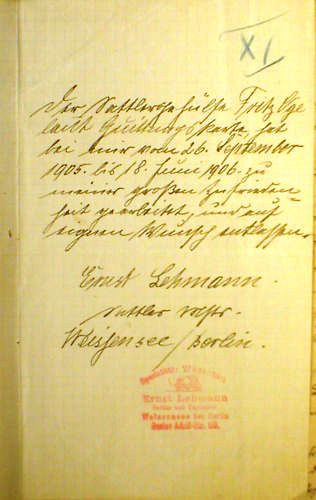 XI
Der Sattlergehülfe Fritz Oge
laut Quittungskarte, hat
bei mir vom 26. September
1905. bis 18. Juni 1906. zu
meiner großen Zufrieden
heit gearbeitet, und auf
eignen Wunsch entlassen.
Ernst Lehmann.
Sattler
Weissensee/Berlin.
Ernst Lehmann
Sattler und Tapezierer
Weissensee bei Berlin